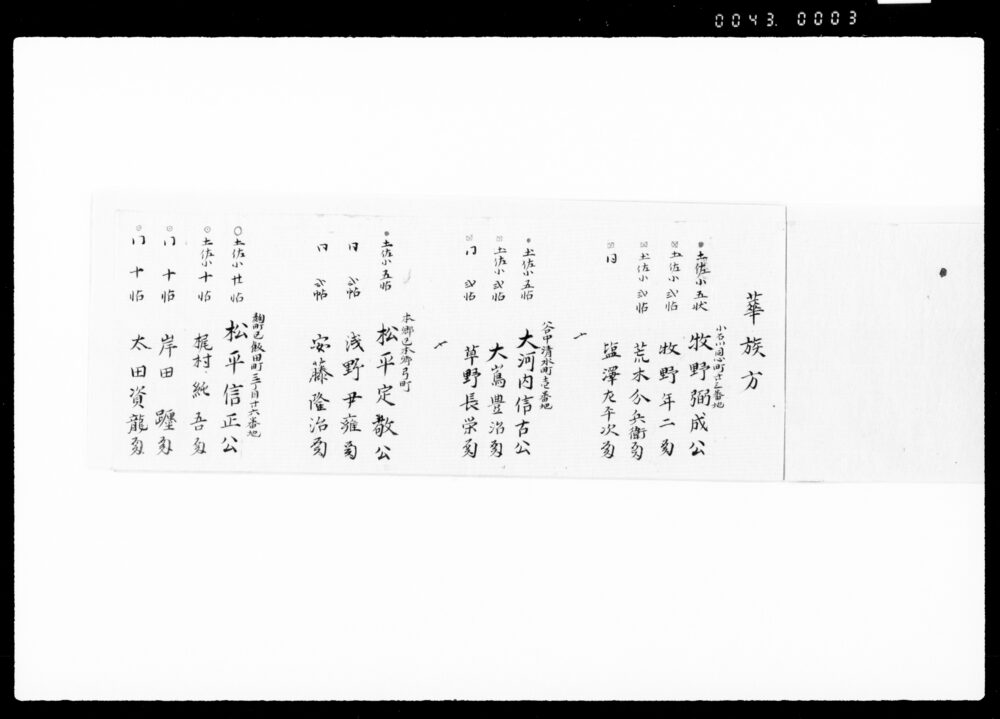 0043. 0003
華族方
土佐小五状 牧野弼成公
土佐小弐帖 牧野年二殿
土佐小弐帖 荒木分兵衛殿
同 塩澤九平次殿
谷中清水町壱番地
土佐小五帖 大河内信古公
土佐小弐帖 大嶌豊治殿
同 弐帖 草野長栄殿
本郷区本郷弓町
土佐小五帖 松平定敬公
同 弐帖 浅野尹雍殿
同 弐帖 安藤隆治殿
麹町区飯田町三丁目十六番地
土佐小廿帖 松平信正公
土佐小十帖 梶村純吾殿
同 十帖 岸田躔殿
同 十帖 太田資龍殿